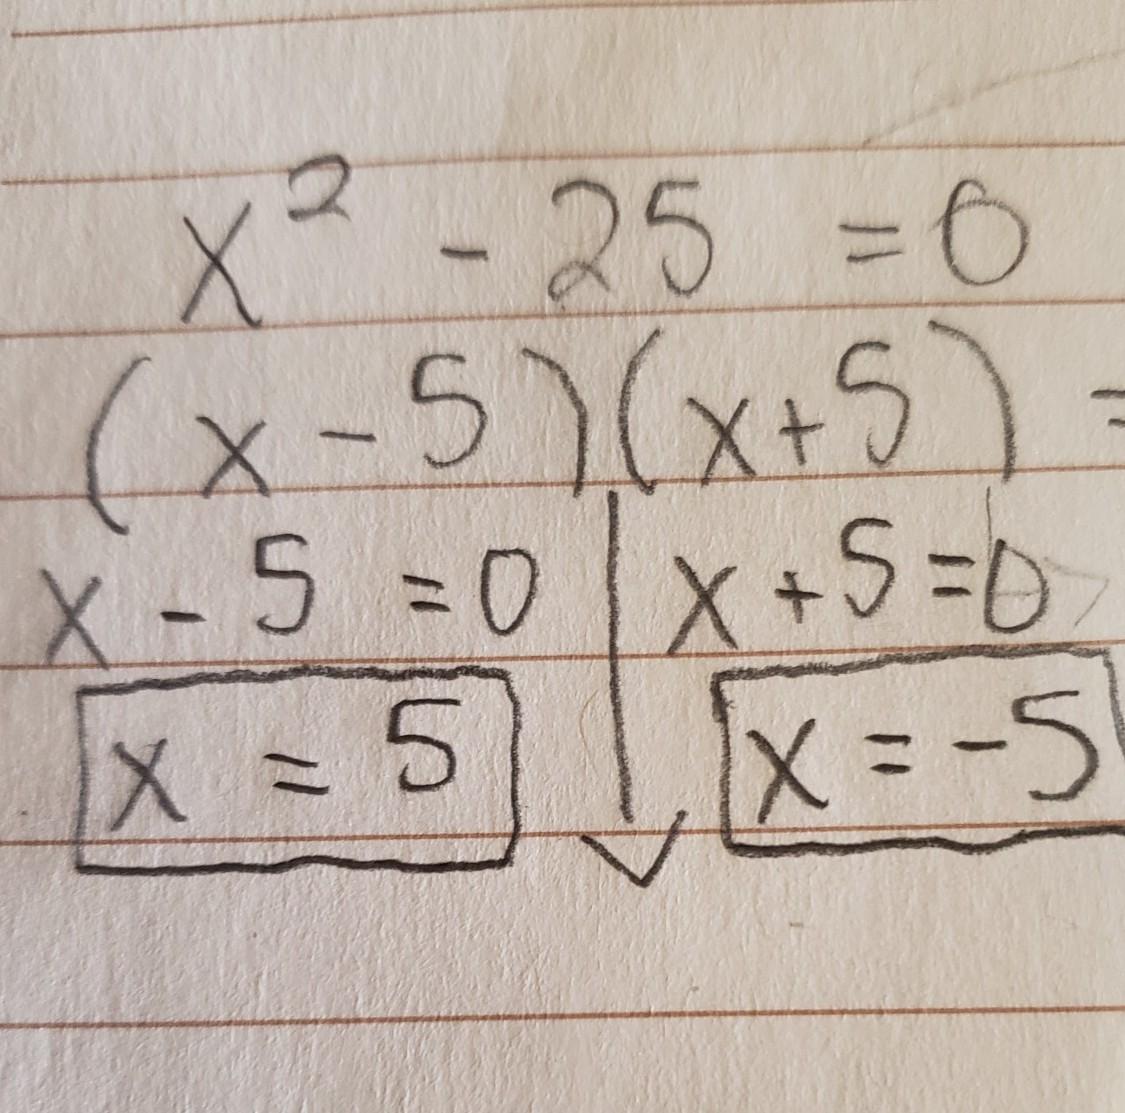 x² - 25 = 0
(x - 5)(x + 5) =
x - 5 = 0 x + 5 = 0
x = 5 x = -5